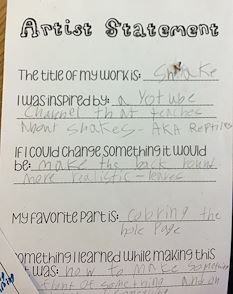 Artist Statement
The title of my work is: Snake
I was inspired by: a Yotube
Channel that teaches
About Snakes - AKA Reptiles
IF I COULD CHANGE SOMETHING IT WOULD
BE: make the back round
more realistic - leaves
MY FAVORITE PART IS: coloring the
hole Page
omething I learned while making this
t was: how to make something
front of something And on